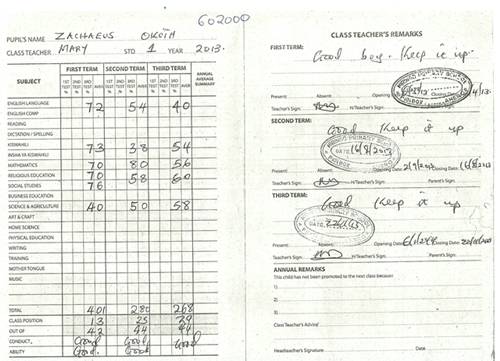 602000
PUPIL'S NAME ZACHAEUS OKOTH
CLASS TEACHER MARY STD 1 YEAR 2013.
SUBJECT FIRST TERM SECOND TERM THIRD TERM ANNUAL AVERAGE SUMMARY
1ST TEST % 2ND TEST % 3RD TEST % AVER 1ST TEST % 2ND TEST % 3RD TEST % AVER 1ST TEST % 2ND TEST % 3RD TEST % AVER
ENGLISH LANGUAGE 72 54 40
ENGLISH COMP
READING
DICTATION / SPELLING
KISWAHILI 73 38 54
INSHA YA KISWAHILI
MATHEMATICS 70 80 56
RELIGIOUS EDUCATION 70 58 60
SOCIAL STUDIES 76
BUSINESS EDUCATION
SCIENCE & AGRICULTURE 40 50 58
ART & CRAFT
HOME SCIENCE
PHYSICAL EDUCATION
WRITING
TRAINING
MOTHER TONGUE
MUSIC
TOTAL 401 280 268
CLASS POSITION 13 25 29
OUT OF 42 44 44
CONDUCT, Good Good Good
ABILITY Good. Good
CLASS TEACHER'S REMARKS
FIRST TERM:
Good boy. Keep it up
Present: Absent:
Teacher's Sign: H/Teacher's Sign:
SECOND TERM:
Good Keep it up
PRIMARY SCHOOL
DATE 16/8/2013
Present: Absent: Opening Date: 2/9/2013 Closing Date:
Teacher's Sign: H/Teacher's Sign: Parent's Sign:
THIRD TERM:
Good Keep it up
DATE
Present: Absent: Opening Date: Closing Date:
Teacher's Sign: H/Teacher's Sign: Parent's Sign:
ANNUAL REMARKS
This child has not been promoted to the next class because
1)
2)
3)
Class Teacher's Advice
Headteacher's Signature Date